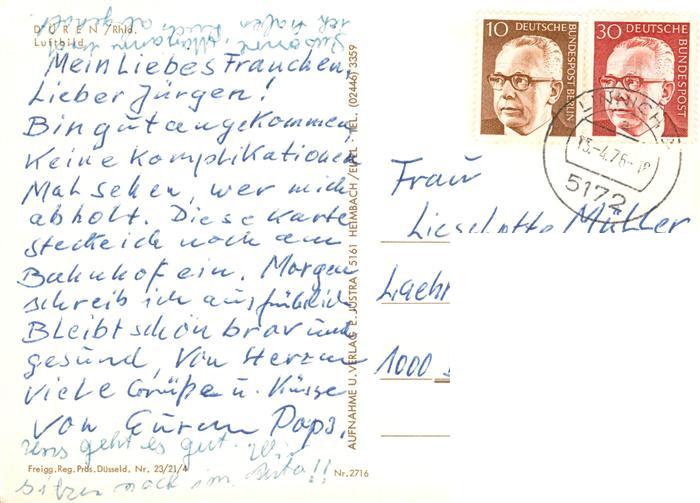 DÜREN/Rhld.
Luftbild
Mein Liebes Frauchen,
Lieber Jürgen!
Bin gut angekommen,
keine Komplikationen
Mal sehen, wer mich
abholt. Diese Karte
stecke ich noch am
Bahnhof ein. Morgen
schreib ich ausführlich
Bleibt schön brav und
gesund, Von Herzen
viele Grüße u. Küsse
von Eurem Papa,
uns geht es gut. Wir
sitzen noch im Auto!!
Freigg. Reg. Präs. Düsseld. Nr. 23/21/4
Nr. 2716
AUFNAHME U. VERLAG E. JUSTRA 5161 HEIMBACH/EIFEL - TEL. (02446) 3359
10 DEUTSCHE BUNDESPOST BERLIN
30 DEUTSCHE BUNDESPOST
LINNICH
5172
Frau
Lieselotte Müller
1000